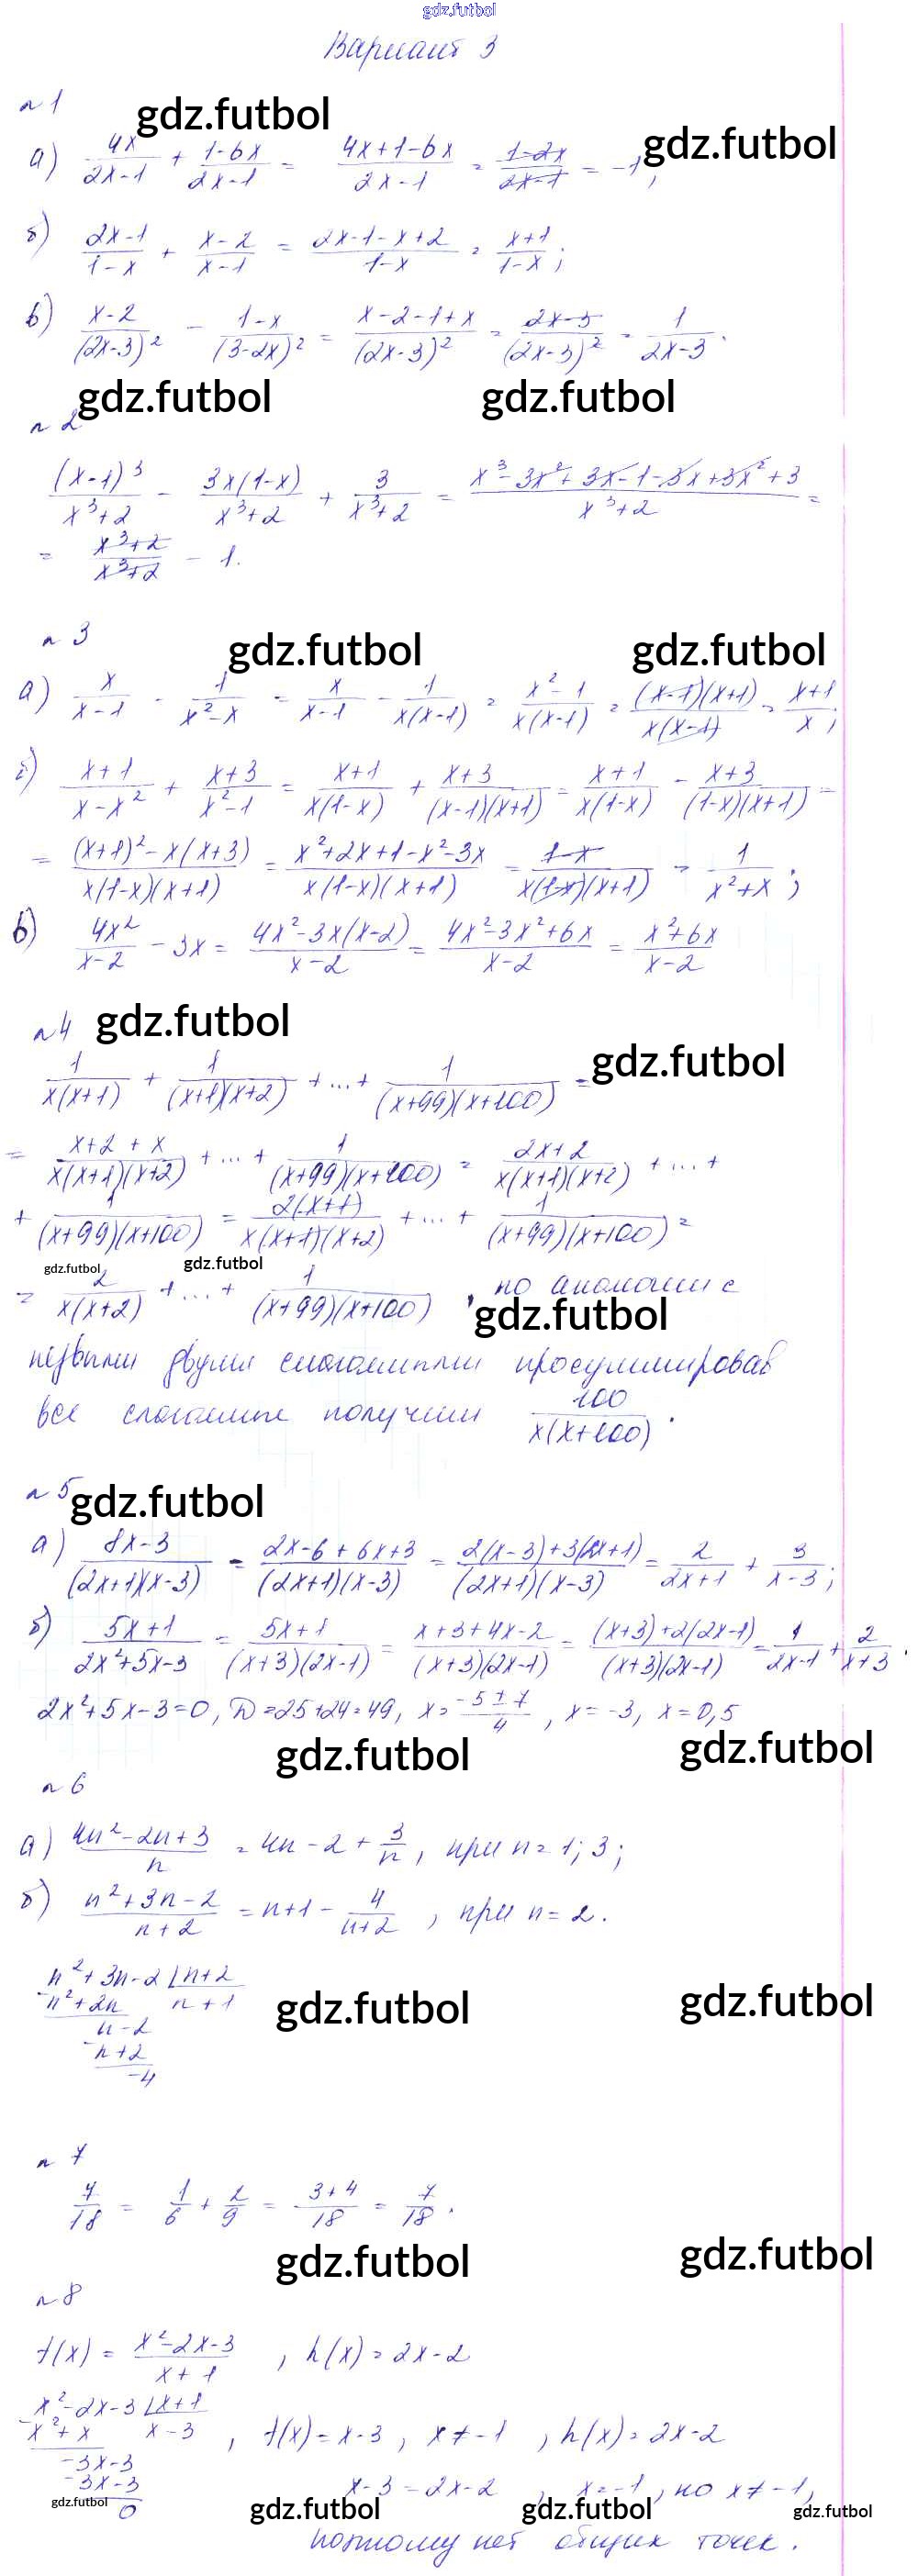 gdz.futbol
Вариант 3
n 1
gdz.futbol
gdz.futbol
а) 4x/(2x-1) + (1-6x)/(2x-1) = (4x+1-6x)/(2x-1) = (1-2x)/(2x-1) = -1;
б) (2x-1)/(1-x) + (x-2)/(x-1) = (2x-1-x+2)/(1-x) = (x+1)/(1-x);
в) (x-2)/(2x-3)² - (1-x)/(3-2x)² = (x-2-1+x)/(2x-3)² = (2x-3)/(2x-3)² = 1/(2x-3).
gdz.futbol gdz.futbol
n 2
(x-1)³/(x³+2) - 3x(1-x)/(x³+2) + 3/(x³+2) = (x³-3x²+3x-1-3x+3x²+3)/(x³+2) =
= (x³+2)/(x³+2) - 1.
n 3
gdz.futbol gdz.futbol
а) x/(x-1) - 1/(x²-x) = x/(x-1) - 1/(x(x-1)) = (x²-1)/(x(x-1)) = (x-1)(x+1)/(x(x-1)) = (x+1)/x;
б) (x+1)/(x-x²) + (x+3)/(x²-1) = (x+1)/(x(1-x)) + (x+3)/((x-1)(x+1)) = (x+1)/(x(1-x)) - (x+3)/((1-x)(x+1)) =
= ((x+1)²-x(x+3))/(x(1-x)(x+1)) = (x²+2x+1-x²-3x)/(x(1-x)(x+1)) = (1-x)/(x(1-x)(x+1)) = 1/(x²+x);
в) 4x²/(x-2) - 3x = (4x²-3x(x-2))/(x-2) = (4x²-3x²+6x)/(x-2) = (x²+6x)/(x-2)
n 4
gdz.futbol
gdz.futbol
1/(x(x+1)) + 1/((x+1)(x+2)) + ... + 1/((x+99)(x+100)) =
= (x+2+x)/(x(x+1)(x+2)) + ... + 1/((x+99)(x+100)) = (2x+2)/(x(x+1)(x+2)) + ... +
+ 1/((x+99)(x+100)) = 2(x+1)/(x(x+1)(x+2)) + ... + 1/((x+99)(x+100)) =
gdz.futbol gdz.futbol
= 2/(x(x+2)) + ... + 1/((x+99)(x+100)), по аналогии с
gdz.futbol
первыми двумя слагаемыми просуммировав
все слагаемые получим 100/(x(x+100)).
n 5
gdz.futbol
а) (8x-3)/((2x+1)(x-3)) = (2x-6+6x+3)/((2x+1)(x-3)) = (2(x-3)+3(2x+1))/((2x+1)(x-3)) = 2/(2x+1) + 3/(x-3);
б) (5x+1)/(2x²+5x-3) = (5x+1)/((x+3)(2x-1)) = (x+3+4x-2)/((x+3)(2x-1)) = ((x+3)+2(2x-1))/((x+3)(2x-1)) = 1/(2x-1) + 2/(x+3).
2x²+5x-3=0, D=25+24=49, x=(-5±7)/4, x=-3, x=0,5
gdz.futbol gdz.futbol
n 6
а) (4n²-2n+3)/n = 4n-2+3/n, при n=1; 3;
б) (n²+3n-2)/(n+2) = n+1-4/(n+2), при n=2.
n²+3n-2 | n+2
-n²+2n n+1
gdz.futbol gdz.futbol
n-2
-n+2
-4
n 7
7/18 = 1/6 + 2/9 = (3+4)/18 = 7/18.
gdz.futbol gdz.futbol
n 8
f(x) = (x²-2x-3)/(x+1), h(x)=2x-2
x²-2x-3 | x+1
-x²+x x-3, f(x)=x-3, x≠-1, h(x)=2x-2
-3x-3
-3x-3
0
x-3=2x-2, x=-1, но x≠-1,
gdz.futbol gdz.futbol gdz.futbol gdz.futbol
поэтому нет общих точек.